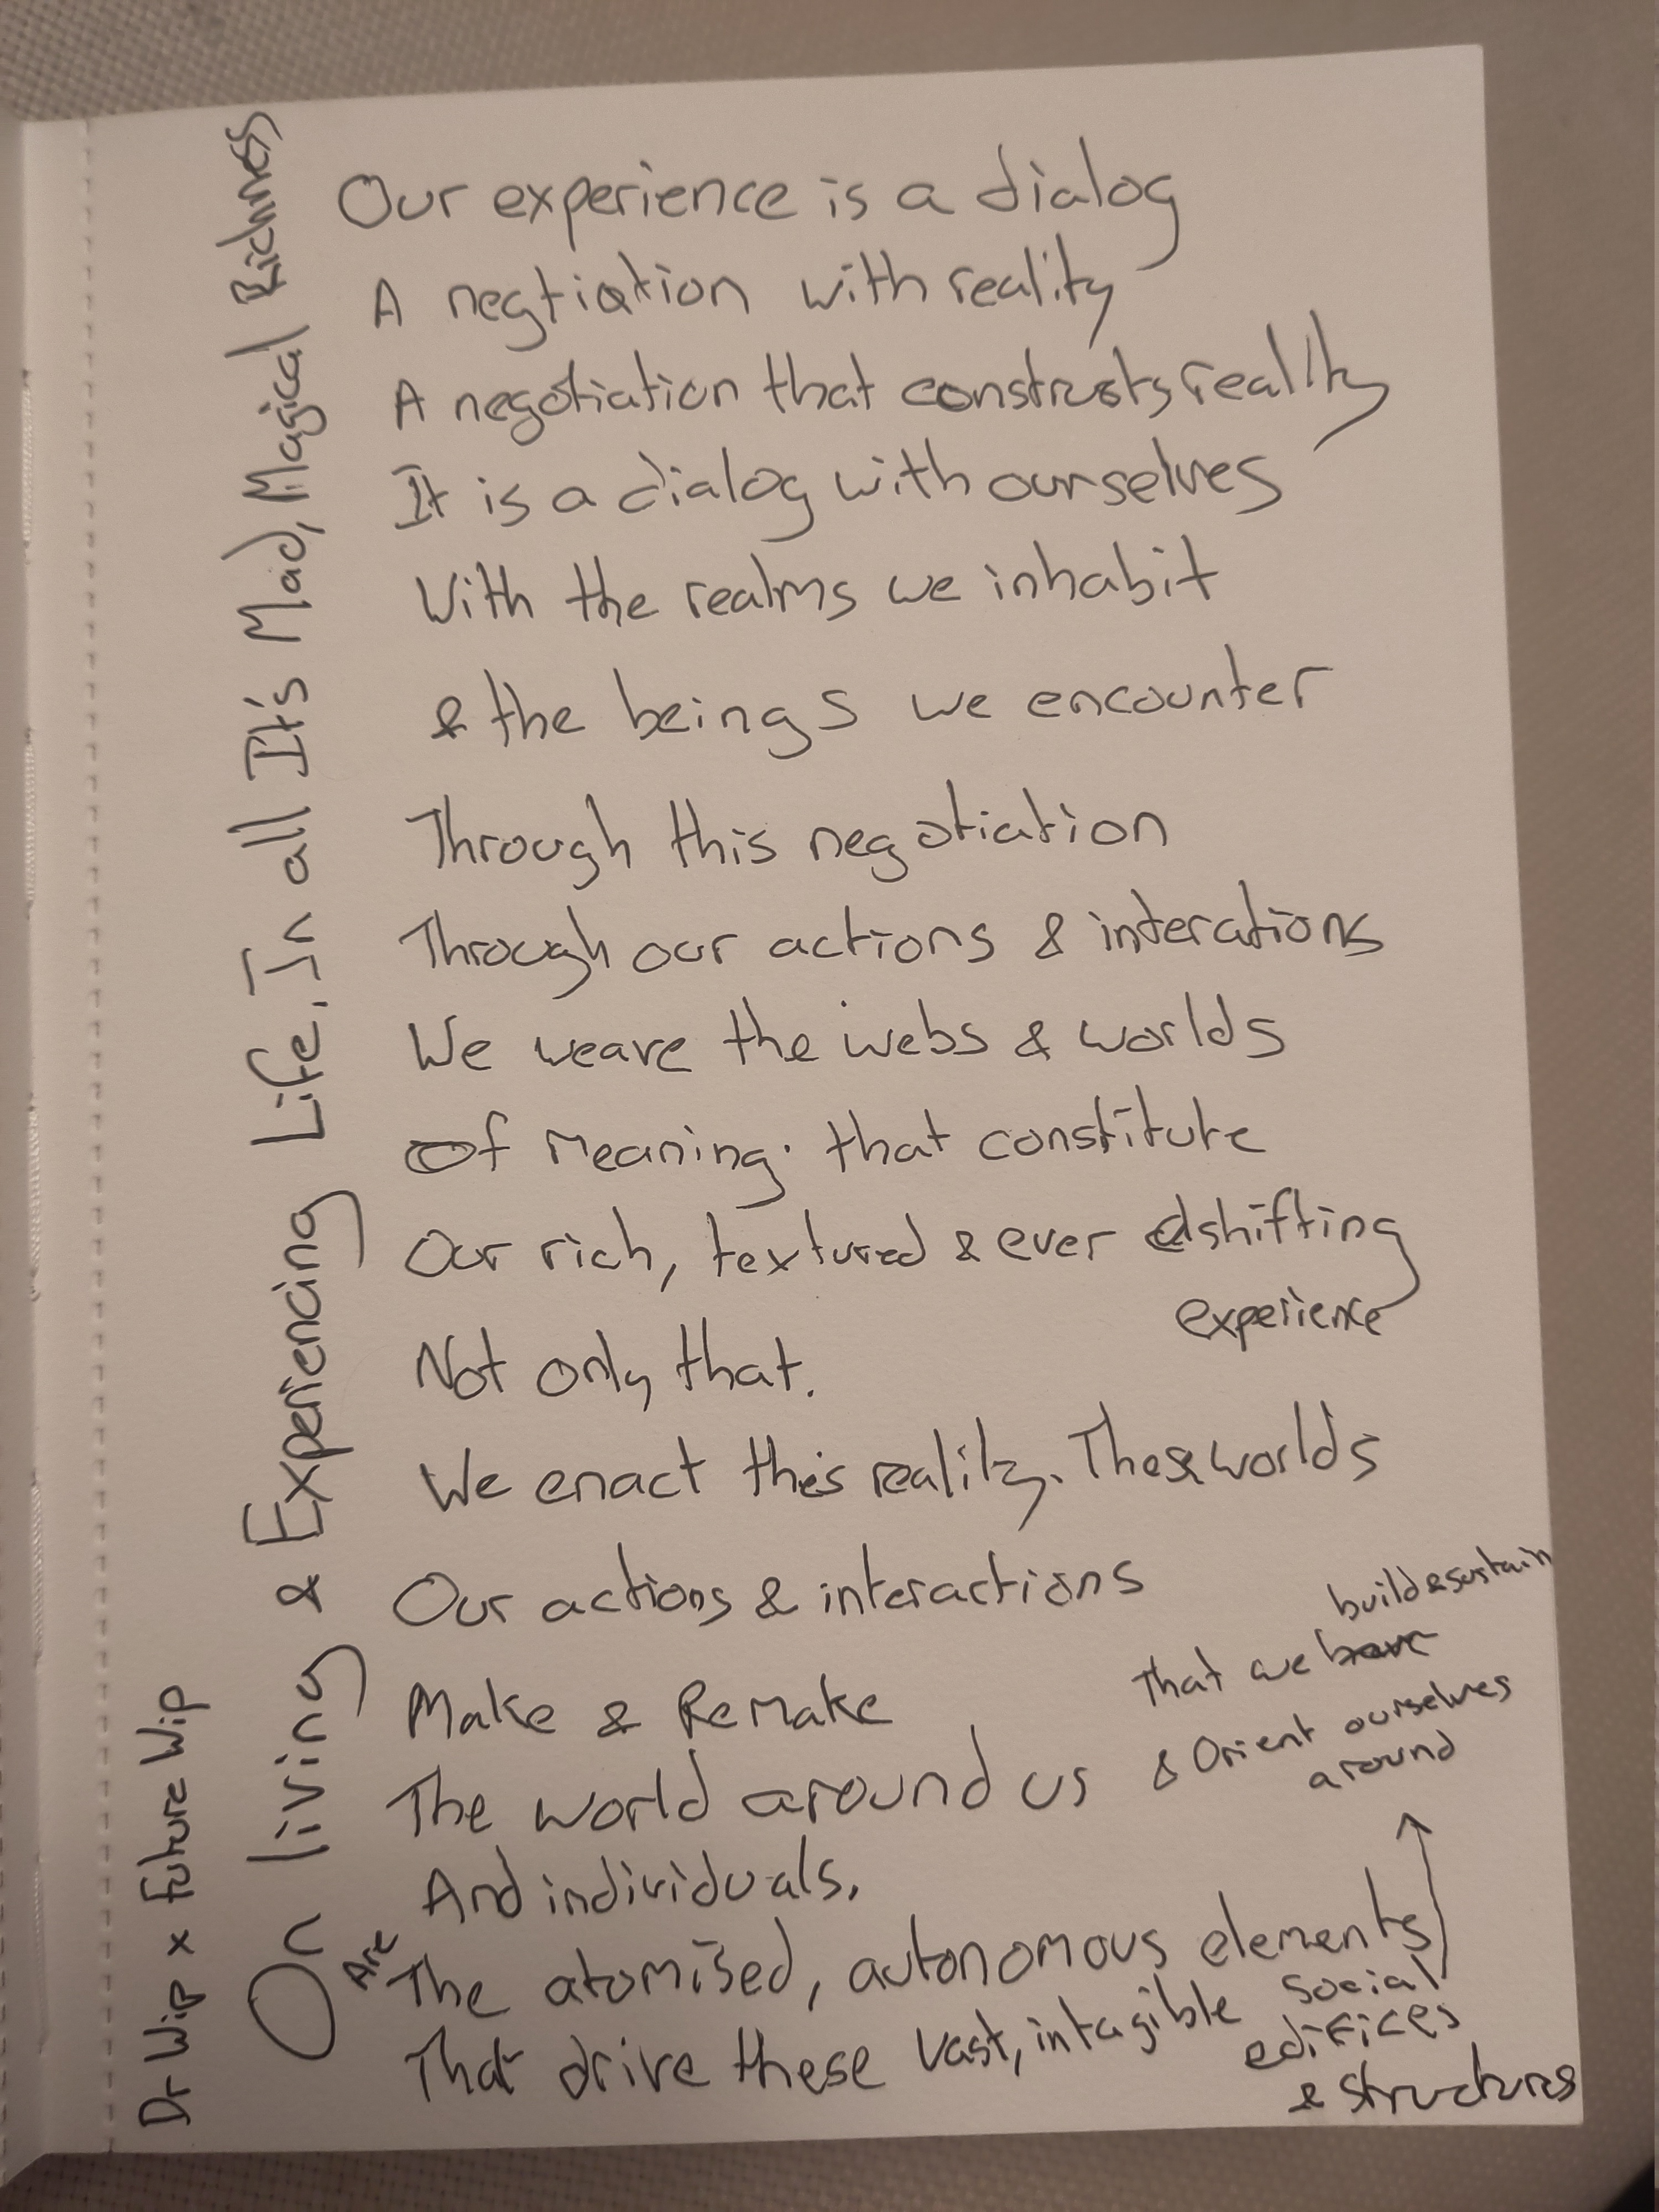 Dr Wip x Future Wip
On living & Experiencing Life. In all It's Mad, Magical Richness
Our experience is a dialog
A negtiation with reality
A negotiation that constructs reality
It is a dialog with ourselves
With the realms we inhabit
& the beings we encounter
Through this negotiation
Through our actions & interations
We weave the webs & worlds
Of meaning. that constitute
Our rich, textured & ever shifting
experience
Not only that.
We enact this reality. These worlds
Our actions & interactions
Make & Remake
The world around us
And individuals.
Are
The atomised, autonomous elements
That drive these vast, intagible social
edifices
& structures
build & sustain
That we
& Orient ourselves
around